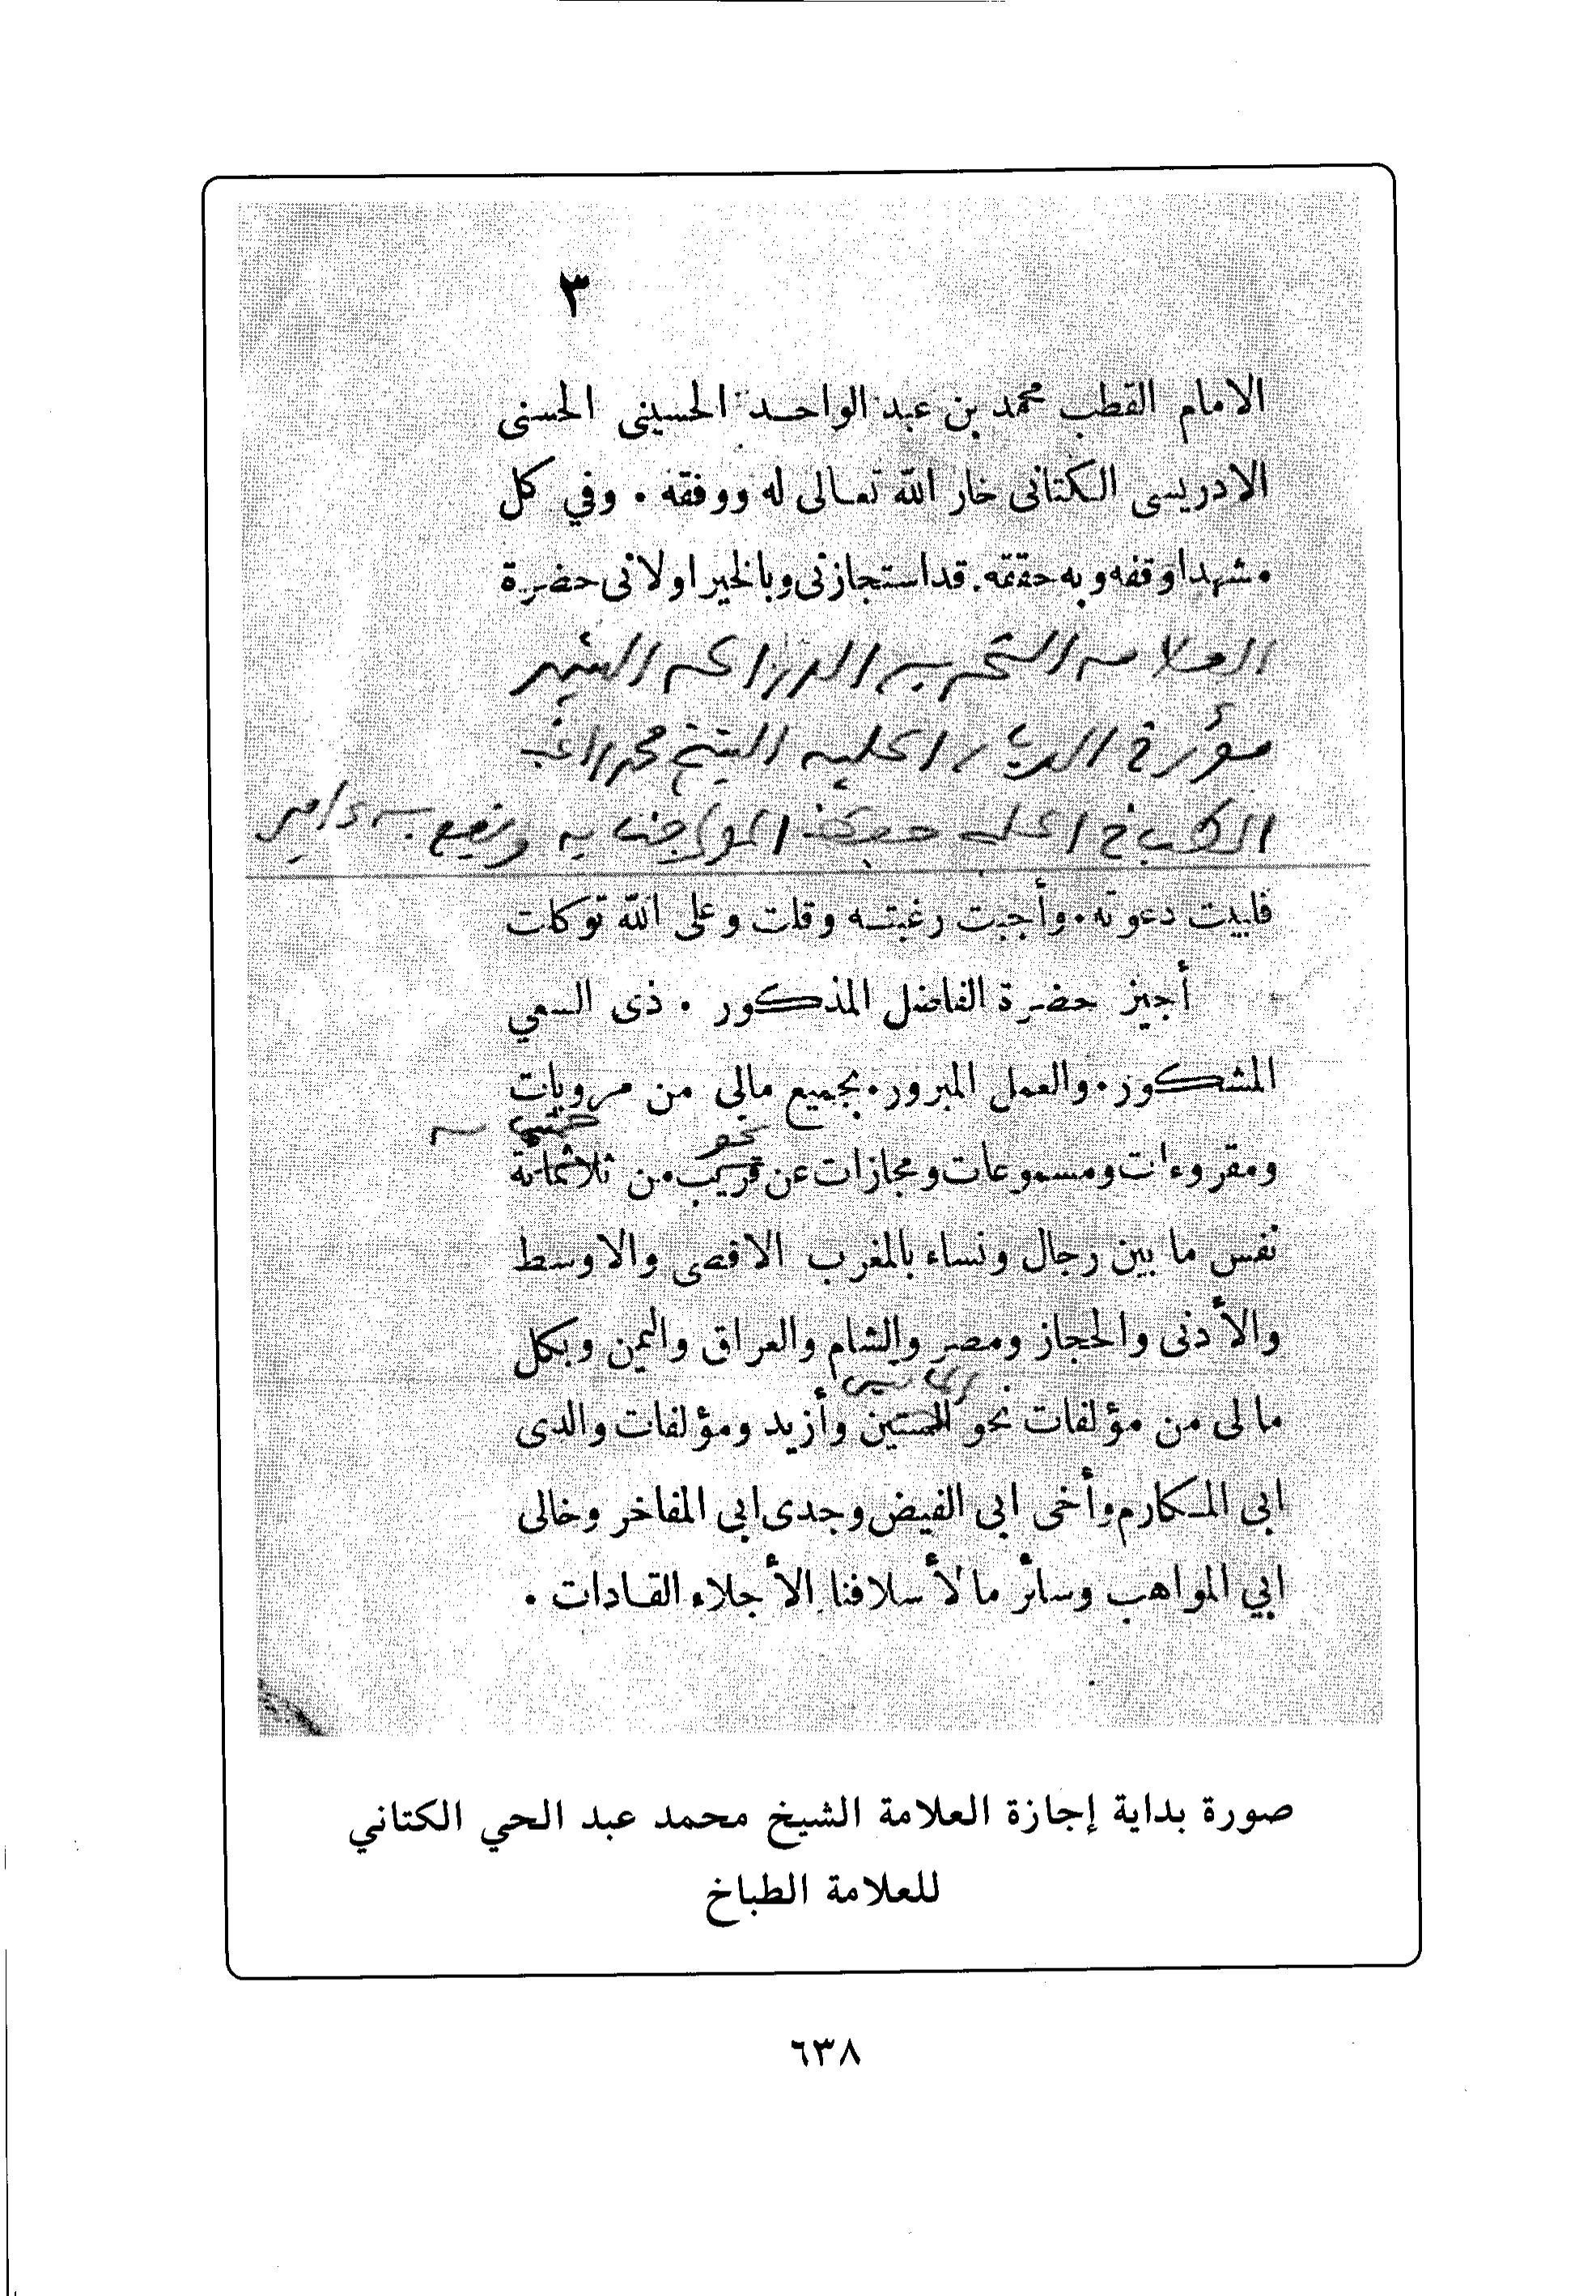 ٣
الامام القطب محمد بن عبد الواحد الحسينى الحسنى
الادريسى الكتانى خار الله تعالى له ووفقه . وفي كل
مشهد اوقفه وبه حققه . قد استجازنى وبالخير اولانى حضرة
العلامه النحرير الدراكه الشهير
مؤرخ الديار الحلبيه الشيخ محمد راغب
الطباخ الحلبي حفظه المولى بعنايته ونفع به ءامين
فلبيت دعوته . وأجبت رغبته وقلت وعلى الله توكلت
أجيز حضرة الفاضل المذكور . ذى السعي
المشكور . والعمل المبرور . بجميع مالى من مرويات
نحو خمس
ومقروءات ومسموعات ومجازات عن قريب من ثلاثمائة
نفس ما بين رجال ونساء بالمغرب الاقصى والاوسط
والأدنى والحجاز ومصر والشام والعراق واليمن وبكل
مالى من مؤلفات نحو وأزيد ومؤلفات والدى
ابى المكارم وأخى ابى الفيض وجدى ابى المفاخر وخالى
ابي المواهب وسائر مالأسلافنا الأجلاء القادات .
صورة بداية إجازة العلامة الشيخ محمد عبد الحي الكتاني
للعلامة الطباخ
٦٣٨